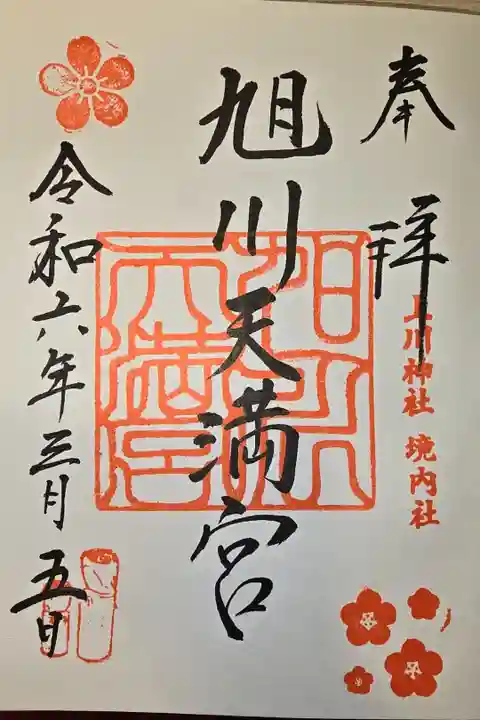 奉拝
上川神社 境内社
旭川天満宮
旭川天満宮
令和六年三月五日